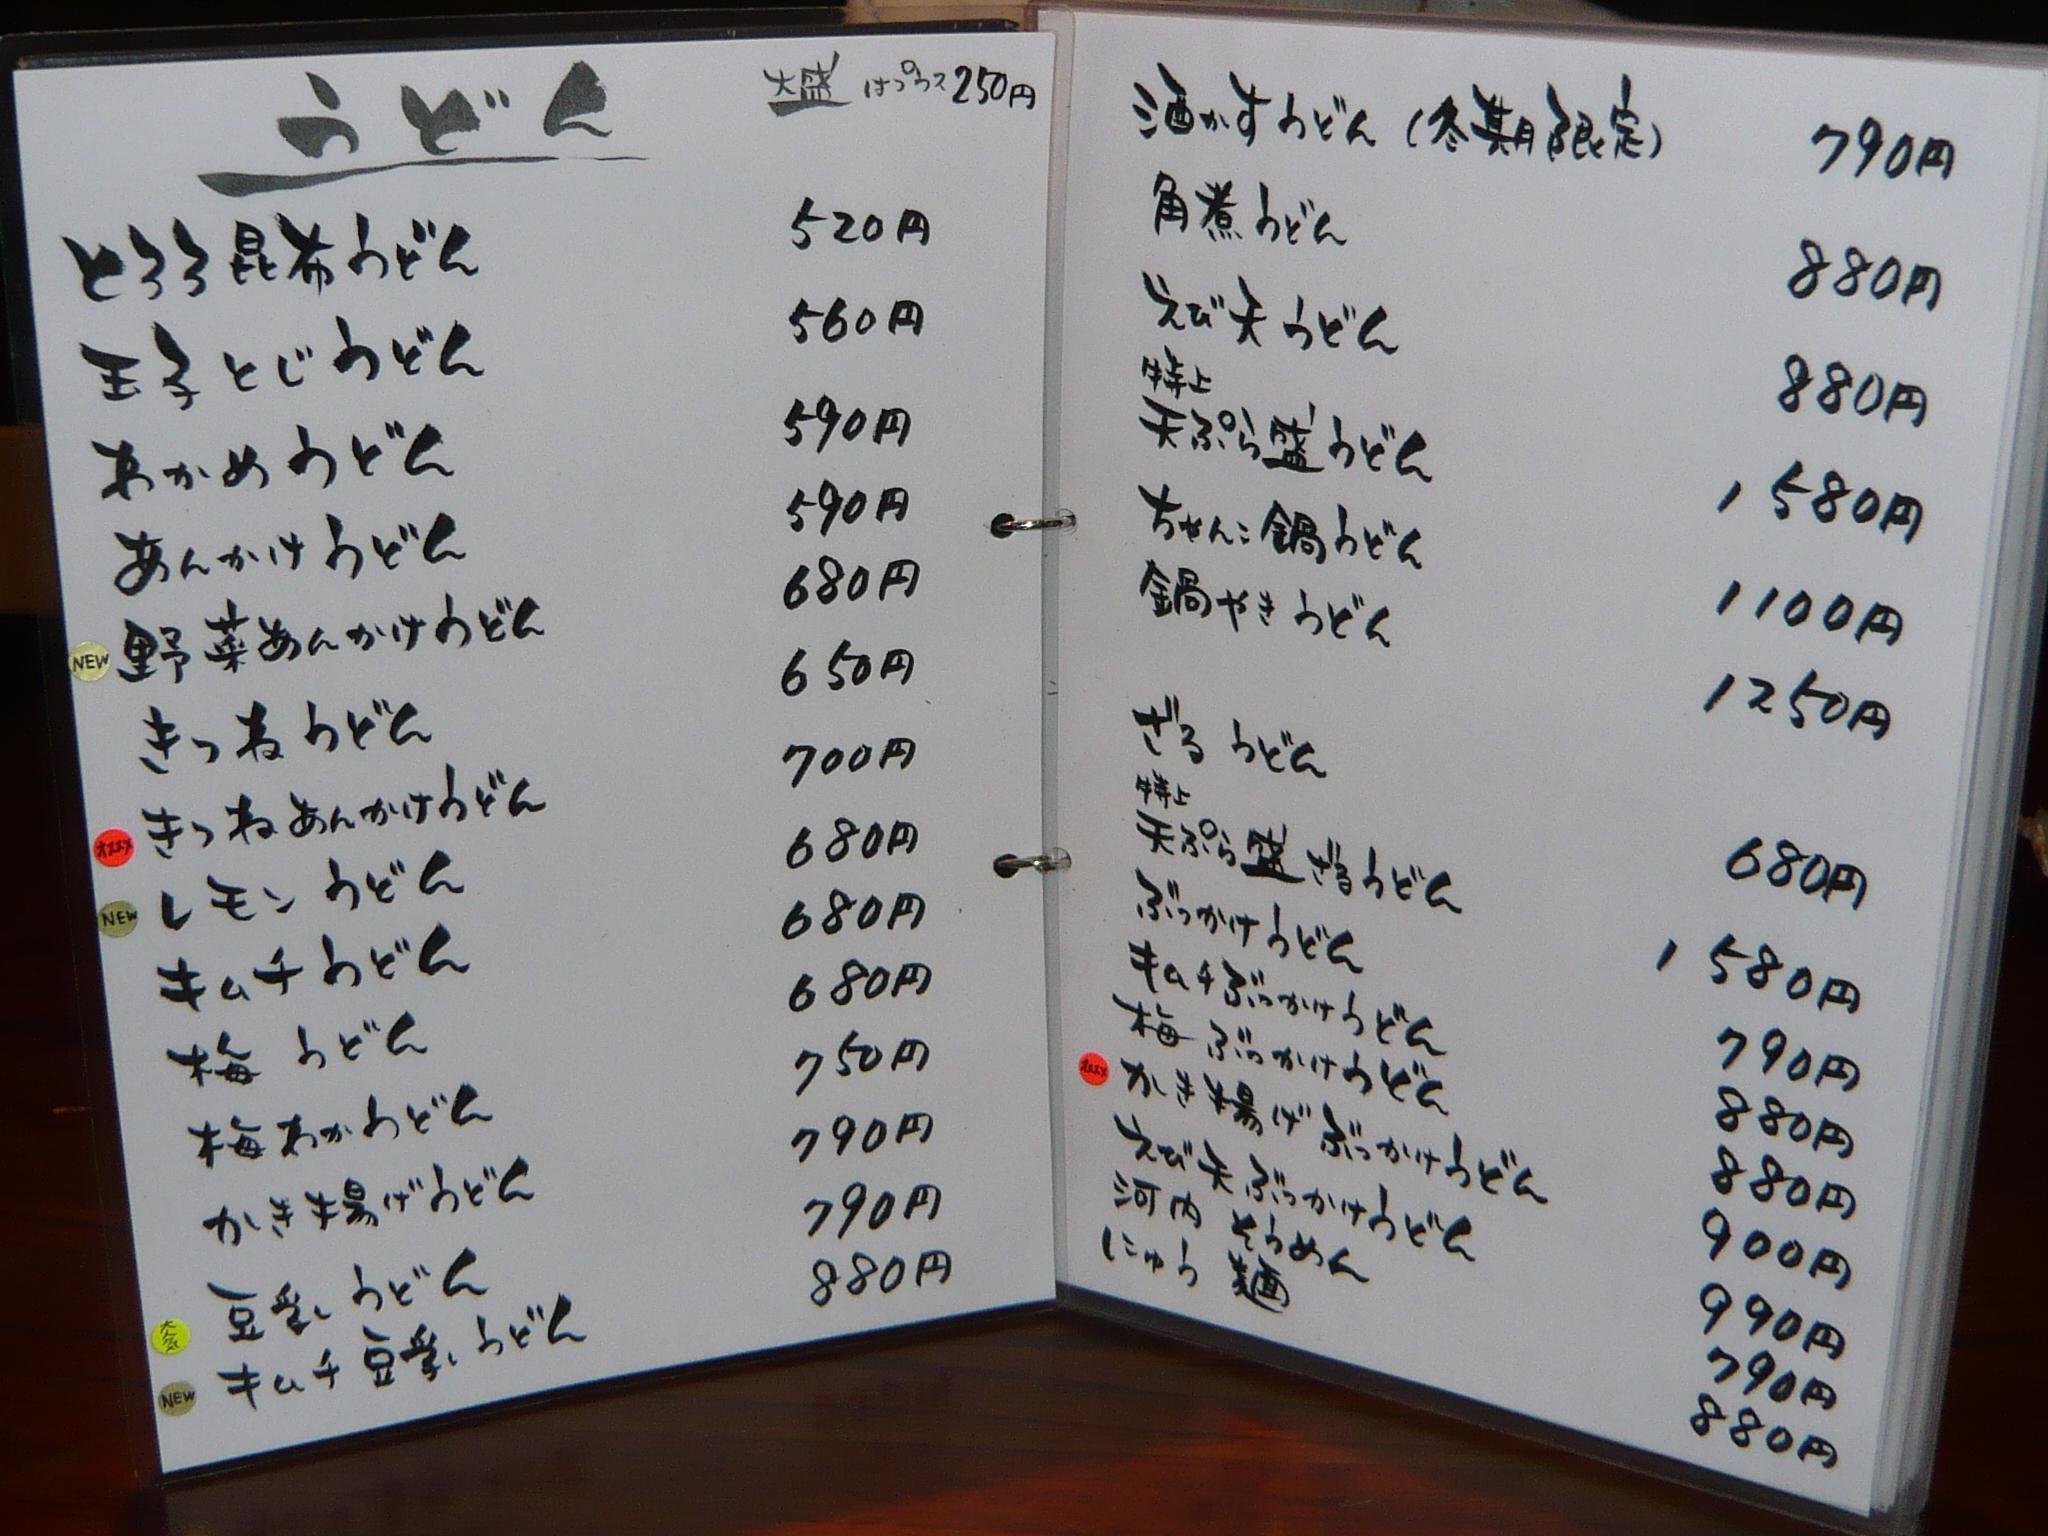 うどん
大盛はプラス250円
とろろ昆布うどん 520円
玉子とじうどん 560円
わかめうどん 590円
あんかけうどん 590円
NEW 野菜あんかけうどん 680円
きつねうどん 650円
オススメ きつねあんかけうどん 700円
NEW レモンうどん 680円
キムチうどん 680円
梅うどん 680円
梅わかうどん 750円
かき揚げうどん 790円
大人気 豆乳うどん 790円
NEW キムチ豆乳うどん 880円
酒かすうどん(冬期限定) 790円
角煮うどん 880円
えび天うどん 880円
特上
天ぷら盛うどん 1580円
ちゃんこ鍋うどん 1100円
鍋やきうどん 1250円
ざるうどん 680円
特上
天ぷら盛ざるうどん 1580円
ぶっかけうどん 790円
キムチぶっかけうどん 880円
梅ぶっかけうどん 880円
オススメ かき揚げぶっかけうどん 900円
えび天ぶっかけうどん 990円
河内そうめん 790円
にゅう麺 880円